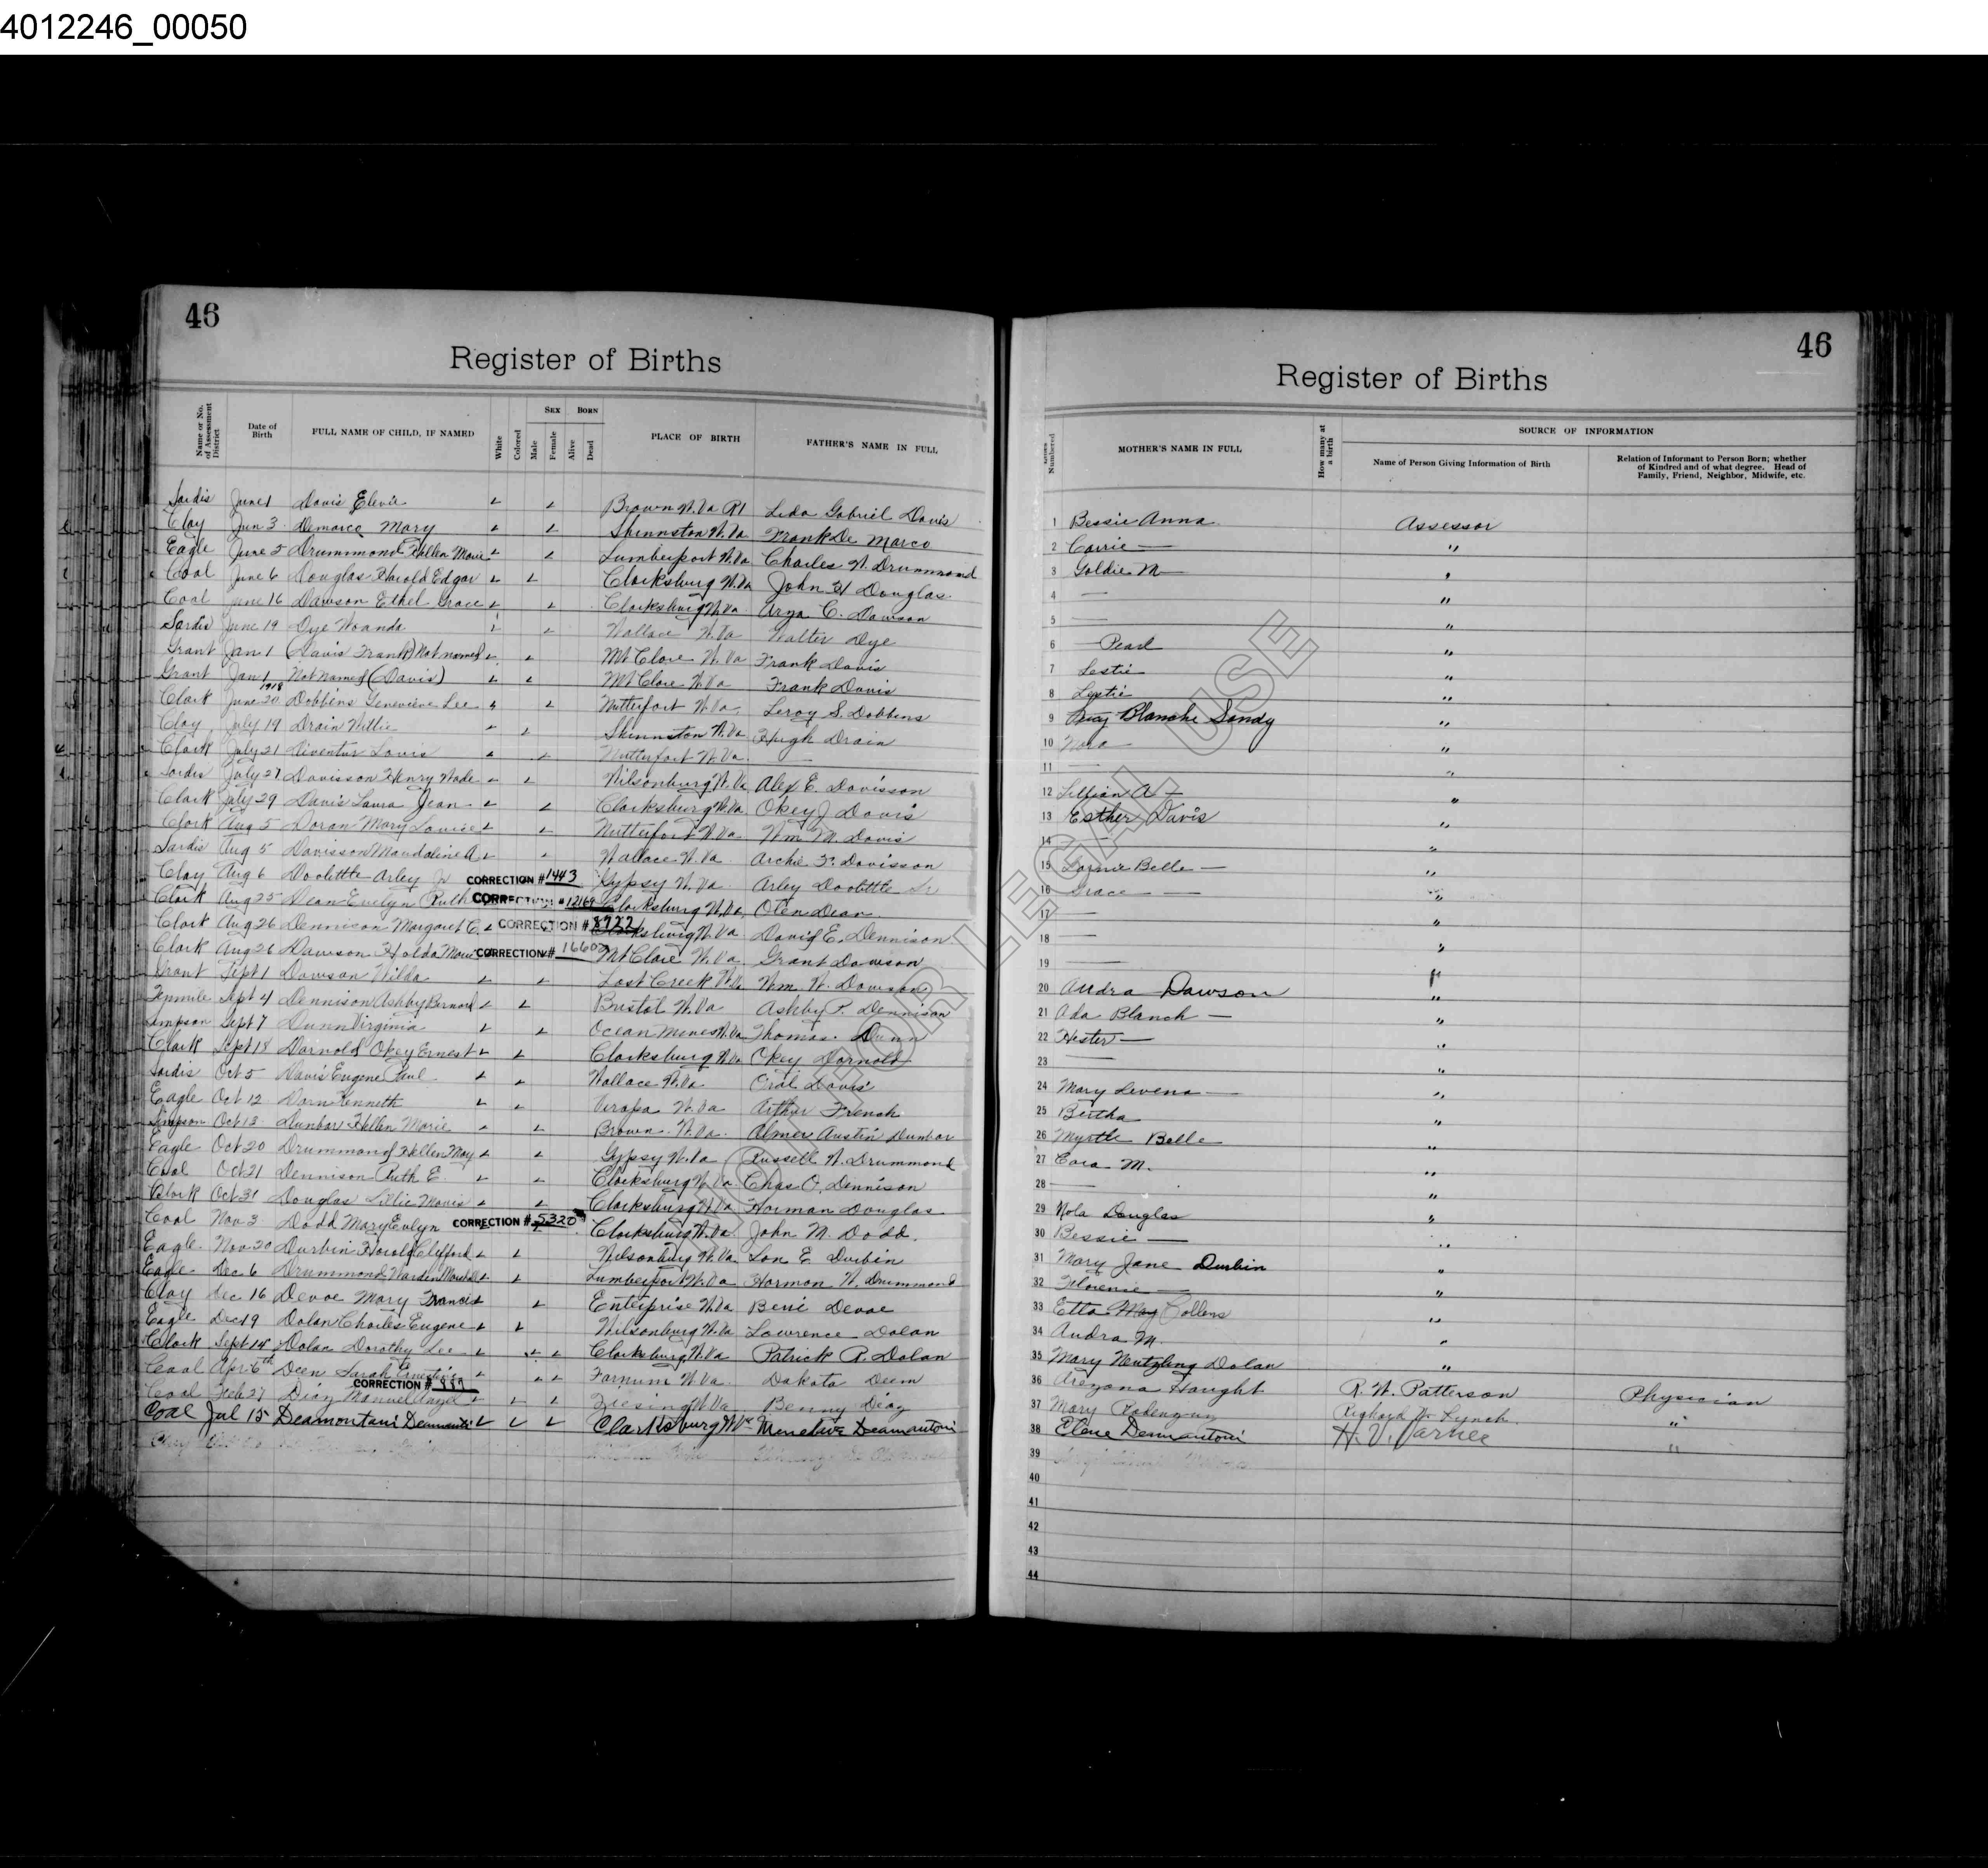 4012246_00050
46
Register of Births
Name or No. of Assessment District | Date of Birth | FULL NAME OF CHILD, IF NAMED | White | Colored | SEX Male Female | BORN Alive Dead | PLACE OF BIRTH | FATHER'S NAME IN FULL
Sardis June 1 Davis Elevie Brown W.Va R1 Leda Gabriel Davis
Clay Jun 3 Demarce Mary Shinnston W.Va Frank De Marco
Eagle June 5 Drummond Hellen Marie Lumberport W.Va Charles W. Drummond
Coal June 6 Douglas Harold Edgar Clarksburg W.Va John H Douglas
Coal June 16 Dawson Ethel Grace Clarksburg W.Va Arza C. Dawson
Sardis June 19 Dye Woanda Wallace W.Va Walter Dye
Grant Jan 1 (Davis Frank) Not named Mt Clare W.Va Frank Davis
Grant Jan 1 Not Named (Davis) Mt Clare W.Va Frank Davis
Clark June 20 1918 Dobbins Genevieve Lee Nutterfort W.Va. Leroy S. Dobbins
Clay July 19 Drain Willie Shinnston W.Va Hugh Drain
Clark July 21 Diventur Louis Nutterfort W.Va.
Sardis July 27 Davisson Henry Wade Wilsonburg W.Va Alex E. Davisson
Clark July 29 Davis Laura Jean Clarksburg W.Va. Okey J Davis
Clark Aug 5 Doran Mary Louise Nutterfort W.Va. Wm. M. Davis
Sardis Aug 5 Davisson Maudaline A. Wallace W.Va. Archie F. Davisson
Clay Aug 6 Doolittle Arley Jr CORRECTION # 1443 Gypsy W.Va. Arley Doolittle Sr
Clark Aug 25 Dean Evelyn Ruth CORRECTION # 12169 Clarksburg W.Va. Oten Dean
Clark Aug 26 Dennison Margaret C. CORRECTION # 8722 Clarksburg W.Va David E. Dennison
Clark Aug 26 Dawson Holda Marie CORRECTION # Mt Clare W.Va. Grant Dawson
Grant Sept 1 Dawson Hilda Lost Creek W.Va Wm. W. Dawson
Tenmile Sept 4 Dennison Ashby Bernard Bristol W.Va Ashby P. Dennison
Simpson Sept 7 Dunn Virginia Ocean Mines W.Va Thomas Dunn
Clark Sept 18 Darnold Okey Ernest Clarksburg W.Va Okey Darnold
Sardis Oct 5 Davis Eugene Paul Wallace W.Va Oral Davis
Eagle Oct 12 Darn Kenneth Viropa W.Va Arthur French
Simpson Oct 13 Dunbar Hellen Marie Brown W.Va. Almer Austin Dunbar
Eagle Oct 20 Drummond Hellen May Gypsy W.Va Russell W. Drummond
Coal Oct 21 Dennison Ruth E. Clarksburg W.Va Chas O. Dennison
Clark Oct 31 Douglas Lillie Mavis Clarksburg W.Va Horman Douglas
Coal Nov 3 Dodd Mary Evelyn CORRECTION # 5320 Clarksburg W.Va John M. Dodd.
Eagle Nov 20 Durbin Harold Clifford Wilsonburg W.Va. Lon E Durbin
Eagle Dec 6 Drummond Warden Marshall Lumberport W.Va Harmon W. Drummond
Clay Dec 16 Devoe Mary Francis Enterprise W.Va Beni Devoe
Eagle Dec 19 Dolan Charles Eugene Wilsonburg W.Va Lawrence Dolan
Clark Sept 14 Dolan Dorothy Lee Clarksburg W.Va Patrick R. Dolan
Coal Apr 6th Deen Sarah Ernestine Farnum W.Va. Dakota Deem
Coal Feb 27 Diaz Manuel Angel CORRECTION # Ziesing W.Va. Benny Diaz
Coal Jul 15 Deamontani Clarksburg W.Va Deamantoni
46
Register of Births
Numbered | MOTHER'S NAME IN FULL | How many at a birth | SOURCE OF INFORMATION
Name of Person Giving Information of Birth | Relation of Informant to Person Born; whether of Kindred and of what degree. Head of Family, Friend, Neighbor, Midwife, etc.
1 Bessie Anna Assessor
2 Carrie "
3 Goldie M "
4 "
5 "
6 Pearl "
7 Lestie "
8 Lystie "
9 Blanche Sandy "
10 Nora "
11 "
12 Lillian A "
13 Esther Davis "
14 "
15 Belle "
16 Grace "
17 "
18 "
19 "
20 Audra Dawson "
21 Ada Blanch "
22 Hester "
23 "
24 Mary Levena "
25 Bertha "
26 Myrtle Belle "
27 Cora M. "
28 "
29 Nola Douglas "
30 Bessie "
31 Mary Jane Durbin "
32 Florence "
33 Etta May Collens "
34 Audra M. "
35 Mary Neutzling Dolan "
36 Arezona Haught R. W. Patterson Physician
37 Mary Richard Lynch "
38 Elene Deamantoni H. V. Varner "
39
40
41
42
43
44
NOT FOR LEGAL USE